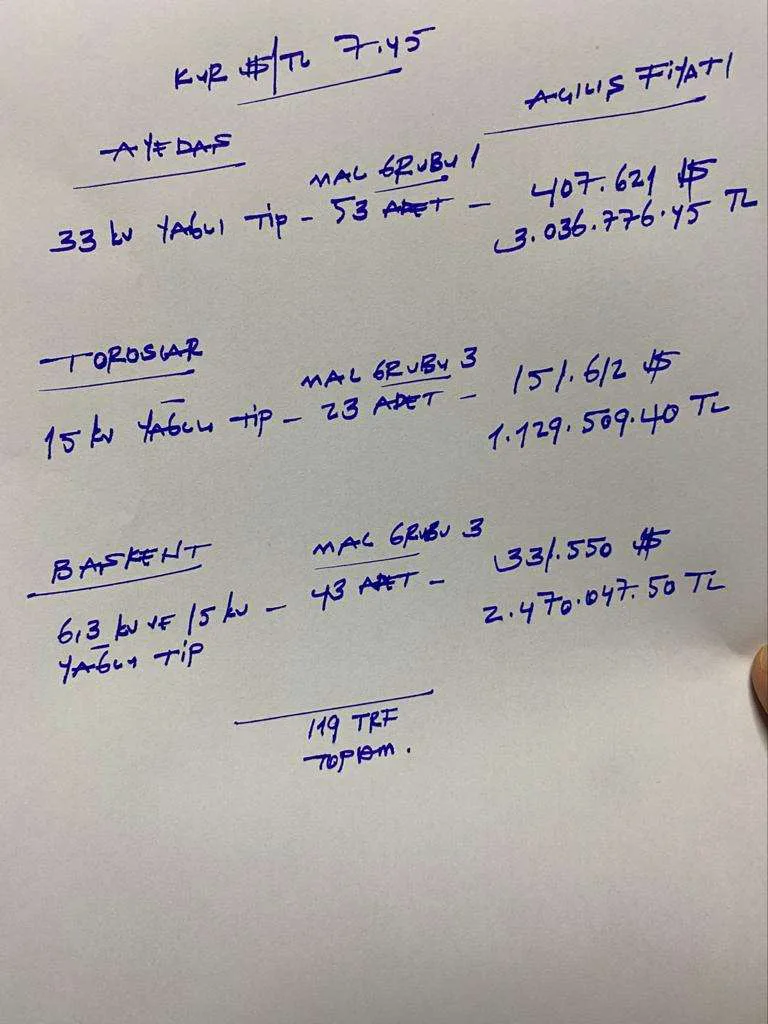 KUR $/TL 7.45
AÇILIŞ FİYATI
AYEDAŞ
MAL GRUBU 1
33 kV YAĞLI TİP - 53 ADET - 407.621 $
3.036.776.45 TL
TOROSLAR
MAL GRUBU 3
15 kV YAĞLI TİP - 23 ADET - 151.612 $
1.129.509.40 TL
BAŞKENT
MAL GRUBU 3
6,3 kV VE 15 kV - 43 ADET - 331.550 $
YAĞLI TİP
2.470.047.50 TL
119 TRF
TOPLAM.